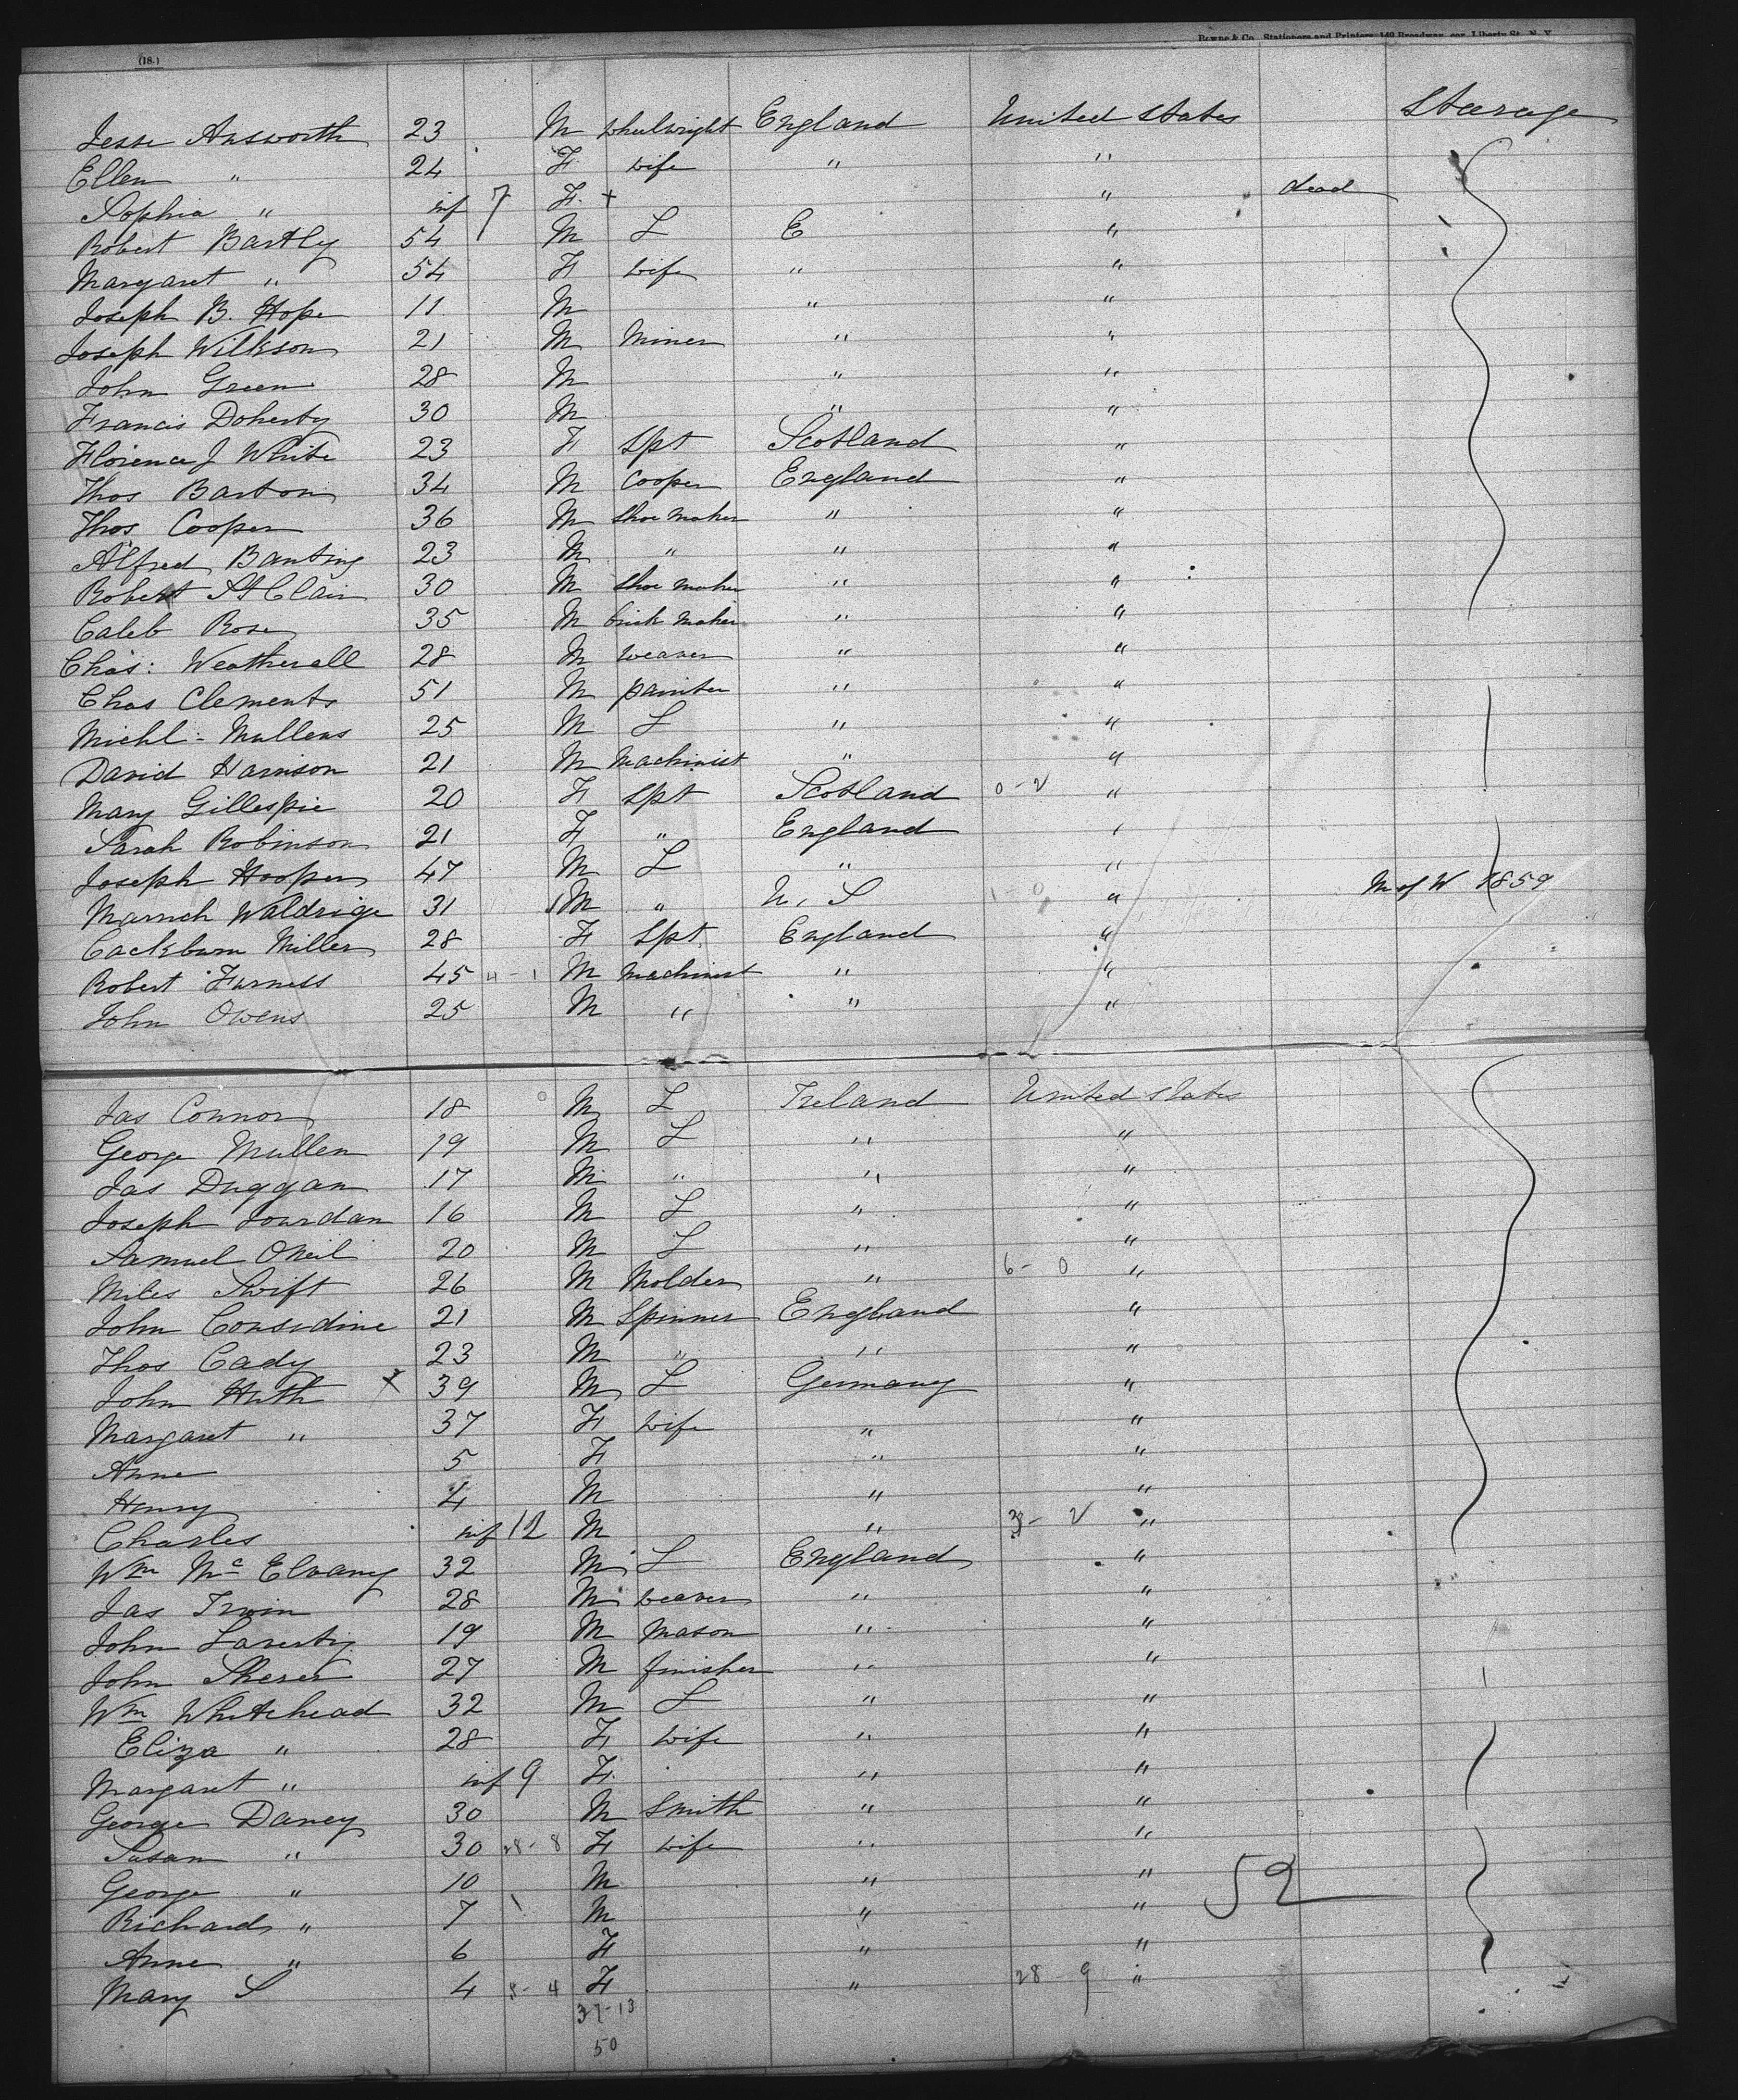 (18.) Bowne & Co., Stationers and Printers, 149 Broadway, cor. Liberty St., N. Y.
Jesse Answorth 23 M wheelwright England United States Stearage
Ellen " 24 F wife " "
Sophia " inf 7 F + " dead
Robert Bartly 54 M L E "
Margaret " 54 F wife " "
Joseph B. Hope 11 M " "
Joseph Wilkson 21 M Miner " "
John Green 28 M " "
Francis Doherty 30 M " "
Florence J White 23 F Spt Scotland "
Thos Barton 34 M Cooper England "
Thos Cooper 36 M Shoe maker " "
Alfred Banting 23 M " " "
Robert St Clair 30 M Shoe maker " "
Caleb Rose 35 M brick maker " "
Chas: Weatherall 28 M weaver " "
Chas Clements 51 M painter " "
Michl Mullens 25 M L " "
David Harrison 21 M Machinist " "
Mary Gillespie 20 F Spt Scotland 0-2 "
Sarah Robinson 21 F " England "
Joseph Hooper 47 M L " "
Waldrige 31 M " U. S 1-0 " M of W 1859
Cackburn Miller 28 F Spt England "
Robert Furness 45 4-1 M Machinist " "
John Owens 25 M " " "
Jas Connor 18 M L Ireland United States
George Mullen 19 M L " "
Jas Duggan 17 M " " "
Joseph Jourdan 16 M L " "
Samuel ONeil 20 M L " "
Miles Swift 26 M Molder " 6-0 "
John Considine 21 M Spinner England "
Thos Cady 23 M " " "
John Huth x 39 M L Germany "
Margaret " 37 F wife " "
Anne 5 F " "
Henry 4 M " "
Charles inf 12 M " 3-2 "
Wm Mc Elvany 32 M L England "
Jas Irwin 28 M weaver " "
John Laverty 19 M Mason " "
John Sherer 27 M finisher " "
Wm Whitehead 32 M L " "
Eliza " 28 F wife " "
Margaret " inf 9 F " "
George Daney 30 M Smith " "
Susan " 30 28-8 F wife " "
George " 10 M " " 52
Richard " 7 M " "
Anne " 6 F " "
Mary S 4 5-4 F " 28-9 "
37-13
50